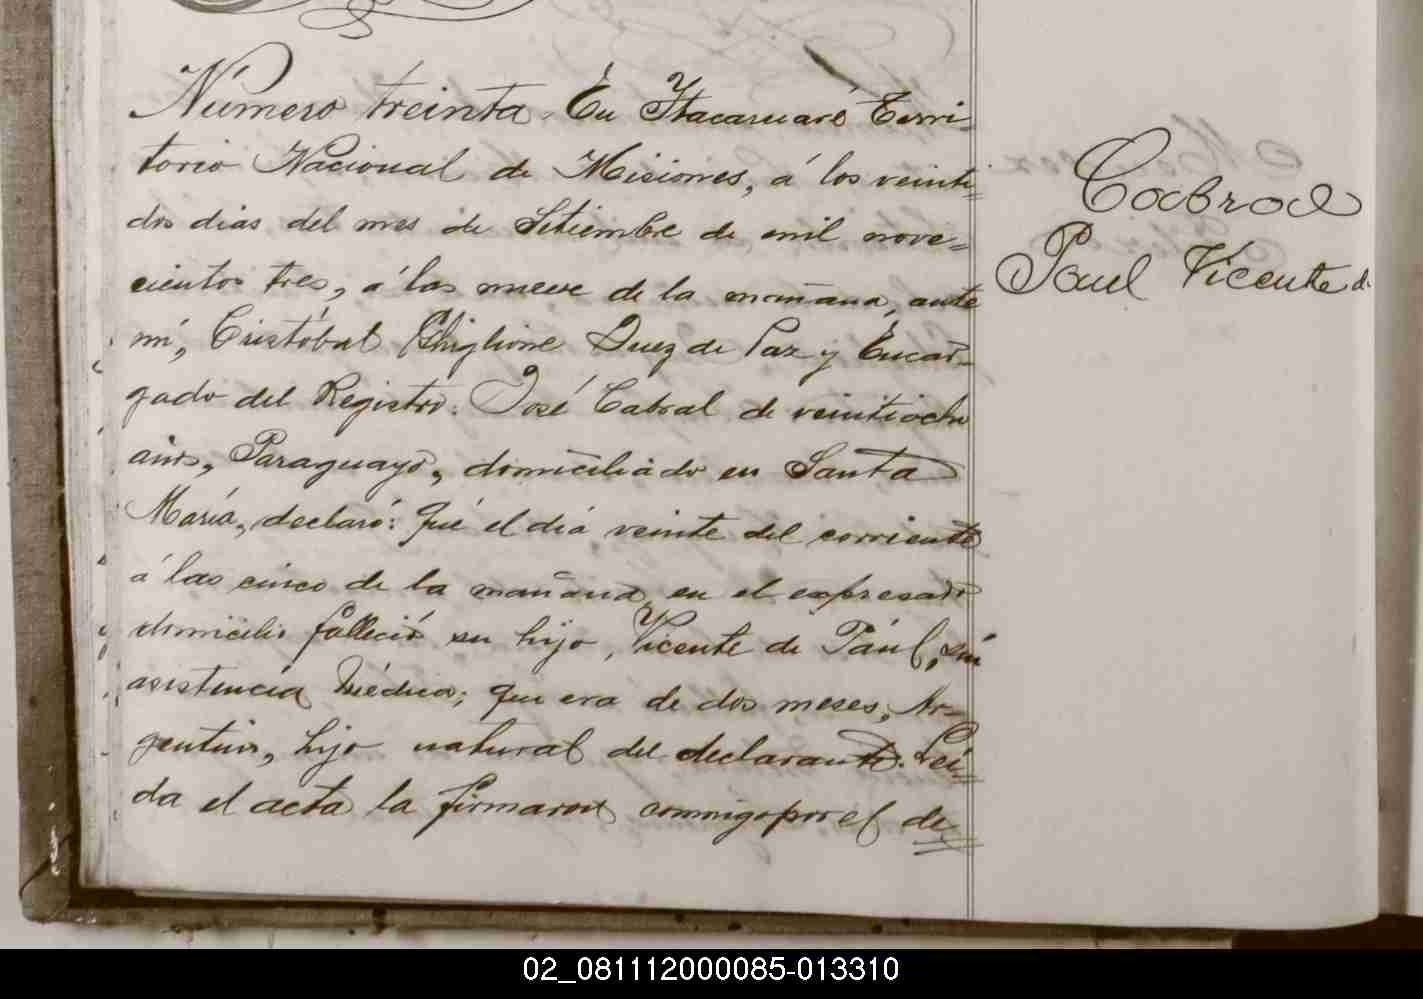 Número treinta. En Itacaruaré Terri-
torio Nacional de Misiones, á los veinti=
dos dias del mes de Setiembre de mil nove=
cientos tres, á las nueve de la mañana, ante
mí, Cristóbal Ghiglione Juez de Paz y Encar-
gado del Registro. José Cabral de veintiocho
años, Paraguayo, domiciliado en Santa
María, declaró: Qué el dia veinte del corriente
á las cinco de la mañana, en el expresado
domicilio falleció su hijo, Vicente de Pául, sin
asistencia médica; que era de dos meses, Ar-
gentino, hijo natural del declarante. Lei=
da el acta la firmaron conmigo por el de=
Cabral
Paul Vicente de
02_081112000085-013310